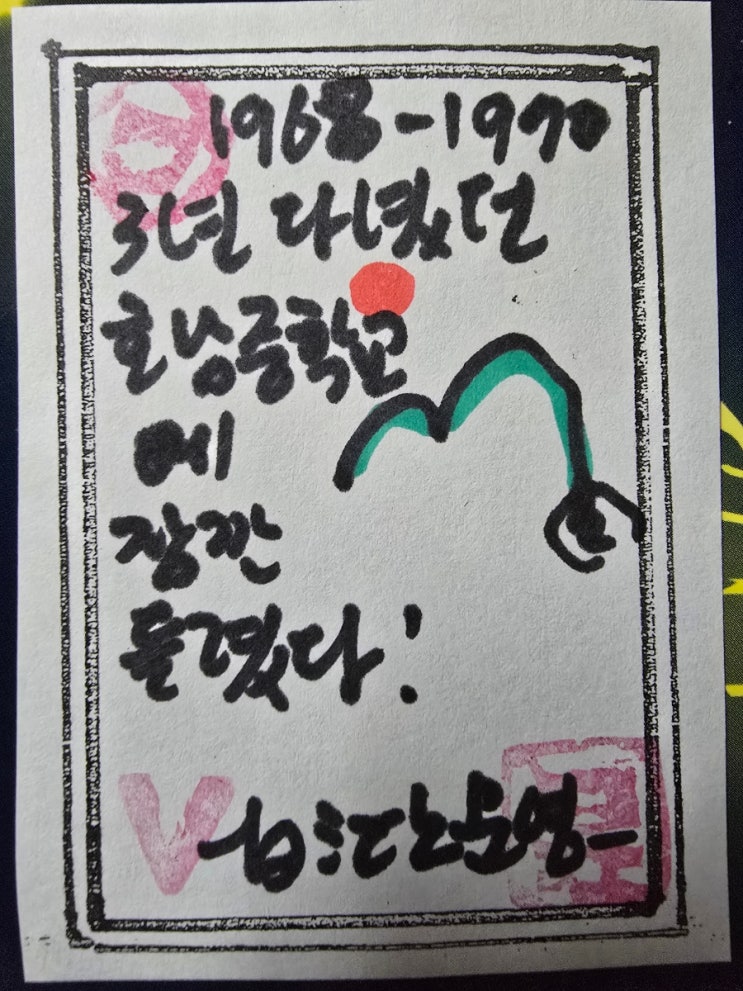 1968-1970
3년 다녔던
호남중학교
에
잠깐
들렸다!